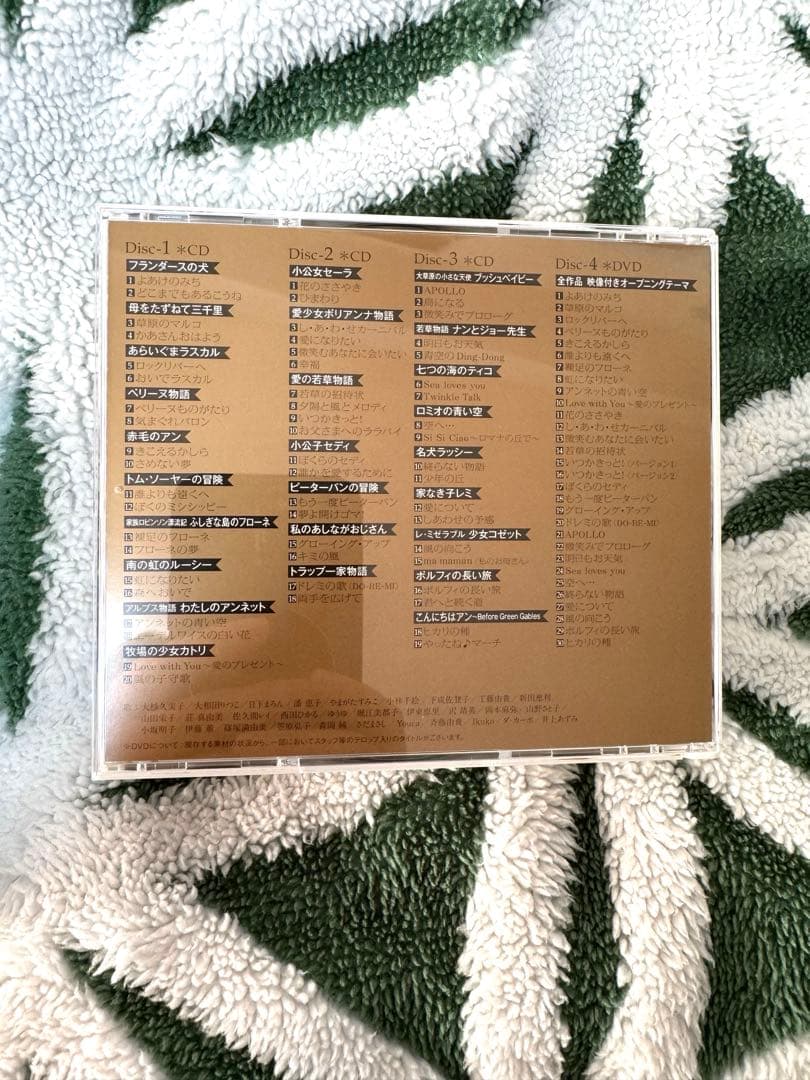 Disc-1 ＊CD
フランダースの犬
1 よあけのみち
2 どこまでもあるこうね
母をたずねて三千里
3 草原のマルコ
4 かあさんおはよう
あらいぐまラスカル
5 ロックリバーへ
6 おいでラスカル
ペリーヌ物語
7 ペリーヌものがたり
8 気まぐれバロン
赤毛のアン
9 きこえるかしら
10 さめない夢
トム・ソーヤーの冒険
11 誰よりも遠くへ
12 ぼくのミシシッピー
家族ロビンソン漂流記 ふしぎな島のフローネ
13 裸足のフローネ
14 フローネの夢
南の虹のルーシー
15 虹になりたい
16 森へおいで
アルプス物語 わたしのアンネット
17 アンネットの青い空
18 エーデルワイスの白い花
牧場の少女カトリ
19 Love with You～愛のプレゼント～
20 風の子守歌
Disc-2 ＊CD
小公女セーラ
1 花のささやき
2 ひまわり
愛少女ポリアンナ物語
3 し・あ・わ・せカーニバル
4 愛になりたい
5 微笑むあなたに会いたい
6 幸福
愛の若草物語
7 若草の招待状
8 夕陽と風とメロディ
9 いつかきっと!
10 お父さまへのララバイ
小公子セディ
11 ぼくらのセディ
12 誰かを愛するために
ピーターパンの冒険
13 もう一度ピーターパン
14 夢よ開けゴマ!
私のあしながおじさん
15 グローイング・アップ
16 キミの風
トラップ一家物語
17 ドレミの歌(DO-RE-MI)
18 両手を広げて
Disc-3 ＊CD
大草原の小さな天使 ブッシュベイビー
1 APOLLO
2 鳥になる
3 微笑みでプロローグ
若草物語 ナンとジョー先生
4 明日もお天気
5 青空のDing-Dong
七つの海のティコ
6 Sea loves you
7 Twinkle Talk
ロミオの青い空
8 空へ…
9 Si Si Ciao～ロマナの丘で～
名犬ラッシー
10 終らない物語
11 少年の丘
家なき子レミ
12 愛について
13 しあわせの予感
レ・ミゼラブル 少女コゼット
14 風の向こう
15 ma maman(私のお母さん)
ポルフィの長い旅
16 ポルフィの長い旅
17 君へと続く道
こんにちはアン～Before Green Gables
18 ヒカリの種
19 やったね♪マーチ
Disc-4 ＊DVD
全作品 映像付きオープニングテーマ
1 よあけのみち
2 草原のマルコ
3 ロックリバーへ
4 ペリーヌものがたり
5 きこえるかしら
6 誰よりも遠くへ
7 裸足のフローネ
8 虹になりたい
9 アンネットの青い空
10 Love with You～愛のプレゼント～
11 花のささやき
12 し・あ・わ・せカーニバル
13 微笑むあなたに会いたい
14 若草の招待状
15 いつかきっと!(バージョン1)
16 いつかきっと!(バージョン2)
17 ぼくらのセディ
18 もう一度ピーターパン
19 グローイング・アップ
20 ドレミの歌(DO-RE-MI)
21 APOLLO
22 微笑みでプロローグ
23 明日もお天気
24 Sea loves you
25 空へ…
26 終らない物語
27 愛について
28 風の向こう
29 ポルフィの長い旅
30 ヒカリの種
歌：大杉久美子／大和田りつこ／日下まろん／潘 恵子／やまがたすみこ／小林千絵／下成佐登子／工藤由貴／新田恵利
山田栄子／荘 真由美／佐久間レイ／西田ひかる／ゆうゆ／堀江美都子／伊東恵里／沢 靖美／岡本麻弥／山野さと子
小坂明子／伊藤 薫／篠塚満由美／笠原弘子／森岡 純／さだまさし／Youca／斉藤由貴／Ikuko／ダ・カーポ／井上あずみ
※DVDについて：現存する素材の状況から、一部においてスタッフ等のテロップ入りのタイトルがございます。